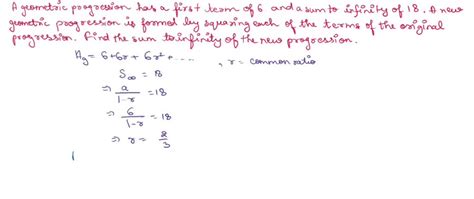 A geometric progression has a first term of 6 and a sum to infinity of 18. A new
geometric progression is formed by squaring each of the terms of the original
progression. Find the sum to infinity of the new progression.
Ag = 6+6r + 6r² + ...., r = common ratio
S∞ = 18
⇒ a/(1-r) = 18
⇒ 6/(1-r) = 18
⇒ r = 2/3